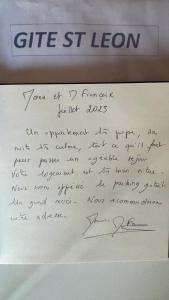 GITE ST LEON
et M Françoise
Juillet 2023
Un appartement très propre, un
site très calme, tout ce qu'il faut
pour passer un agréable séjour
Votre logement est très bien situé.
Nous avons apprécié le parking gratuit
Un grand merci. Nous recommandons
votre adresse.